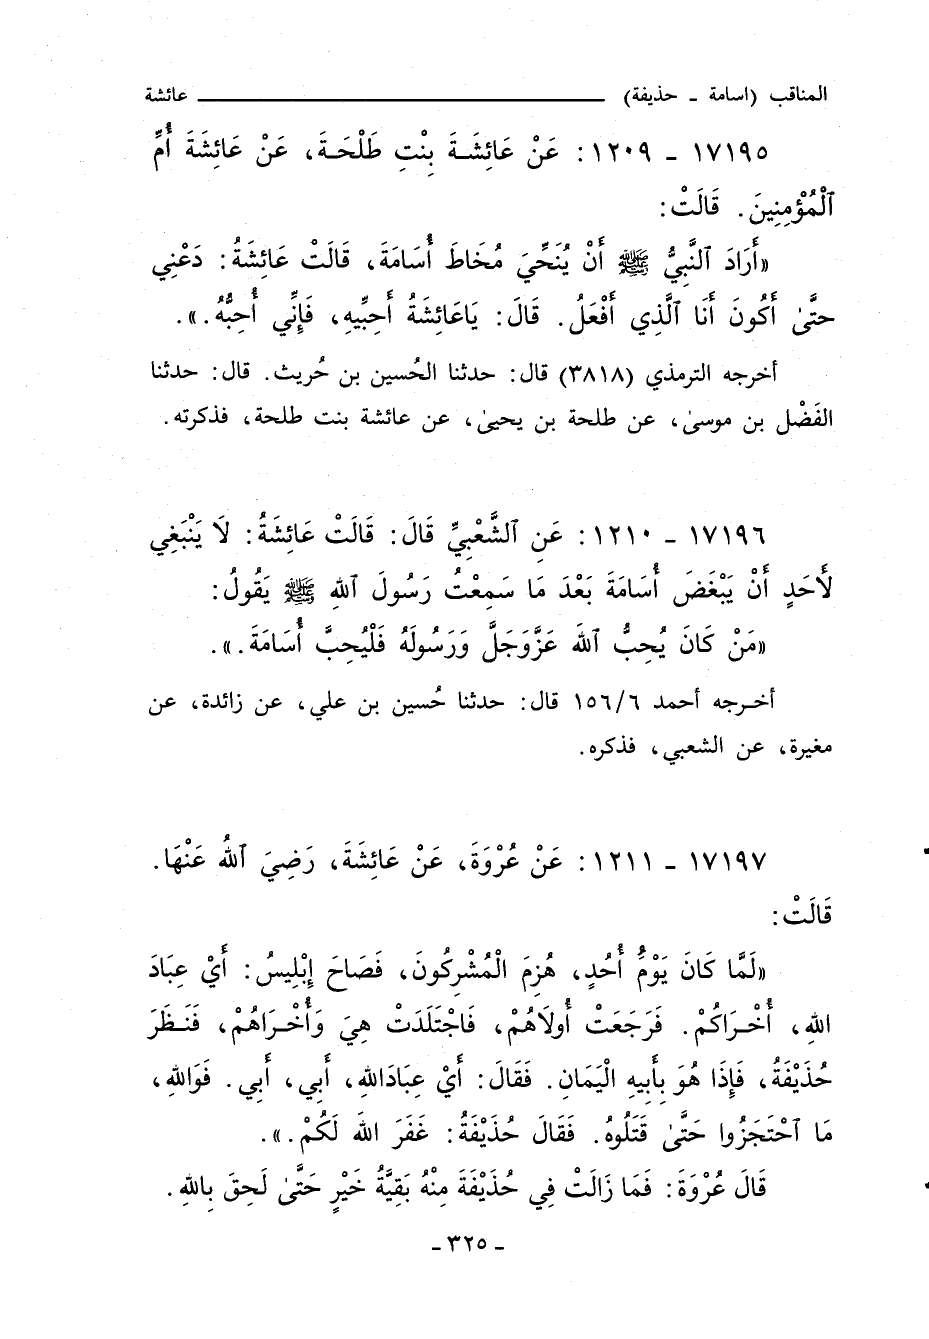 المناقب (اسامة - حذيفة) ــــــــــــــــــــ عائشة
١٧١٩٥ - ١٢٠٩: عَنْ عَائِشَةَ بِنْتِ طَلْحَةَ، عَنْ عَائِشَةَ أُمِّ
ٱلْمُؤْمِنِينَ. قَالَتْ:
«أَرَادَ ٱلنَّبِيُّ ﷺ أَنْ يُنَحِّيَ مُخَاطَ أُسَامَةَ، قَالَتْ عَائِشَةُ: دَعْنِي
حتَّىٰ أَكُونَ أَنَا ٱلَّذِي أَفْعَلُ. قَالَ: يَاعَائِشَةُ أَحِبِّيهِ، فَإِنِّي أُحِبُّهُ.».
أخرجه الترمذي (٣٨١٨) قال: حدثنا الحُسين بن حُريث. قال: حدثنا
الفَضْل بن موسىٰ، عن طلحة بن يحيىٰ، عن عائشة بنت طلحة، فذكرته.
١٧١٩٦ - ١٢١٠: عَنِ ٱلشَّعْبِيِّ قَالَ: قَالَتْ عَائِشَةُ: لَا يَنْبَغِي
لأَحَدٍ أَنْ يَبْغَضَ أُسَامَةَ بَعْدَ مَا سَمِعْتُ رَسُولَ ٱللهِ ﷺ يَقُولُ:
«مَنْ كَانَ يُحِبُّ ٱللهَ عَزَّوَجَلَّ وَرَسُولَهُ فَلْيُحِبَّ أُسَامَةَ.».
أخرجه أحمد ١٥٦/٦ قال: حدثنا حُسين بن علي، عن زائدة، عن
مغيرة، عن الشعبي، فذكره.
١٧١٩٧ - ١٢١١: عَنْ عُرْوَةَ، عَنْ عَائِشَةَ، رَضِيَ ٱللهُ عَنْهَا.
قَالَتْ:
«لَمَّا كَانَ يَوْمُ أُحُدٍ، هُزِمَ الْمُشْرِكُونَ، فَصَاحَ إِبْلِيسُ: أَيْ عِبَادَ
اللهِ، أُخْرَاكُمْ. فَرَجَعَتْ أُولَاهُمْ، فَاجْتَلَدَتْ هِيَ وَأُخْرَاهُمْ، فَنَظَرَ
حُذَيْفَةُ، فَإِذَا هُوَ بِأَبِيهِ الْيَمَانِ. فَقَالَ: أَيْ عِبَادَاللهِ، أَبِي، أَبِي. فَوَاللهِ،
مَا ٱحْتَجَزُوا حَتَّىٰ قَتَلُوهُ. فَقَالَ حُذَيْفَةُ: غَفَرَ اللهُ لَكُمْ.».
قَالَ عُرْوَةَ: فَمَا زَالَتْ فِي حُذَيْفَةَ مِنْهُ بَقِيَّةُ خَيْرٍ حَتَّىٰ لَحِقَ بِاللهِ.
- ٣٢٥ -